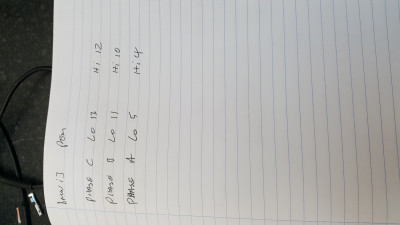 Pom
PHASE C Lo 13 Hi 12
PHASE B Lo 11 Hi 10
PHASE A Lo 5 Hi 4